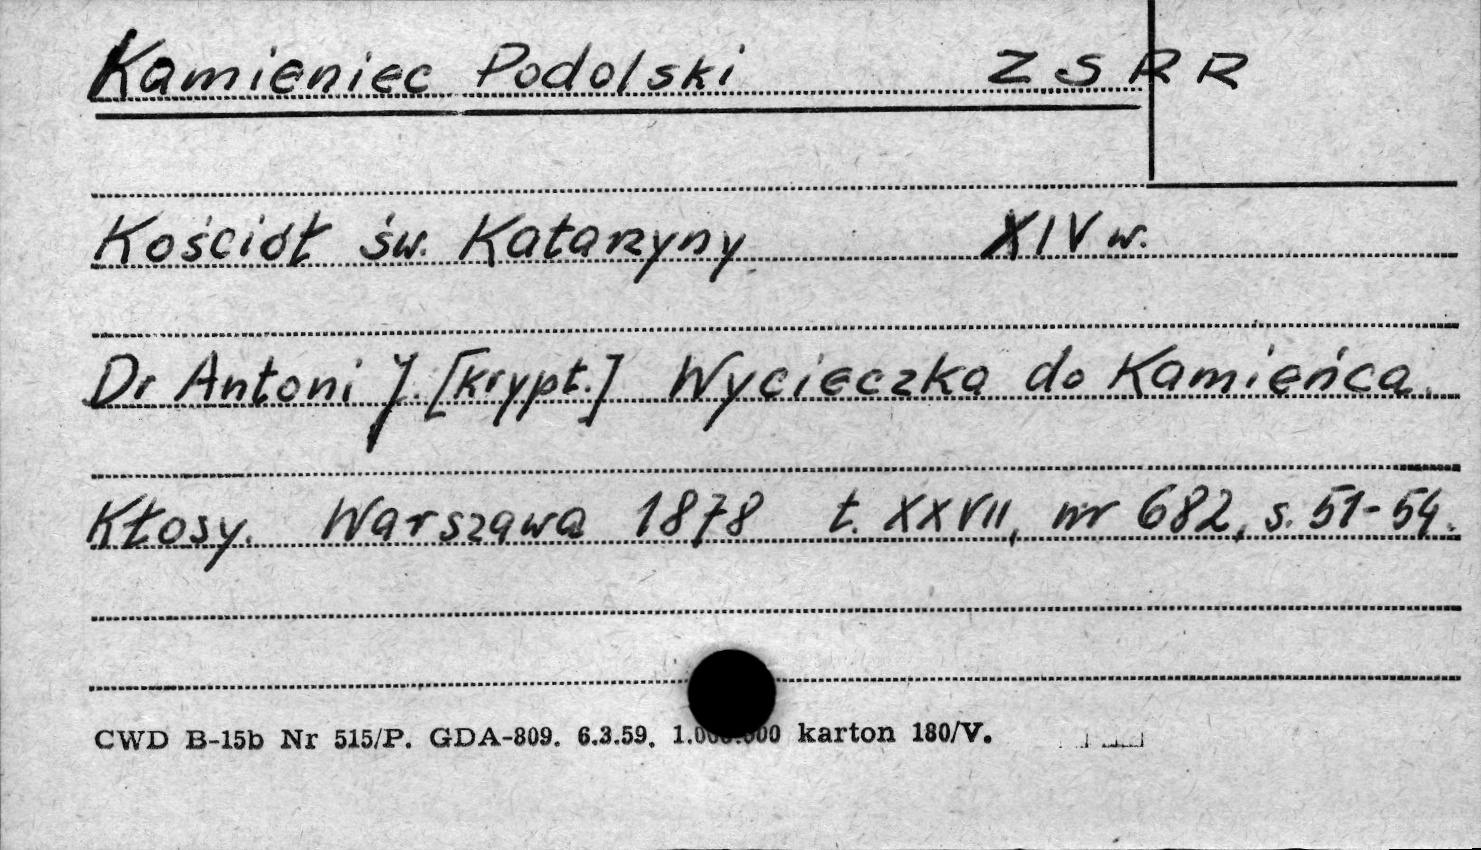 Kamieniec Podolski ZSRR
Kościół św. Katarzyny XIV w.
Dr Antoni J. [krypt.] Wycieczka do Kamieńca.
Kłosy. Warszawa 1878 t. XXVII, nr 682, s. 51-54.
CWD B-15b Nr 515/P. GDA-809. 6.3.59. 1.000.000 karton 180/V.